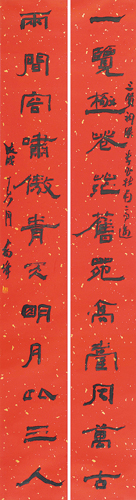 一覽極蒼茫舊苑高臺同萬古
兩間容嘯傲青天明月此三人